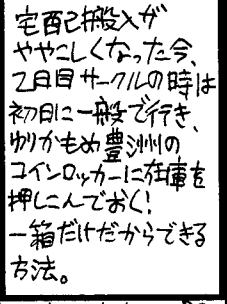 宅配搬入が
ややこしくなった今、
2日目サークルの時は
初日に一般で行き、
ゆりかもめ豊洲の
コインロッカーに在庫を
押しこんでおく!
一箱だけだからできる
方法。